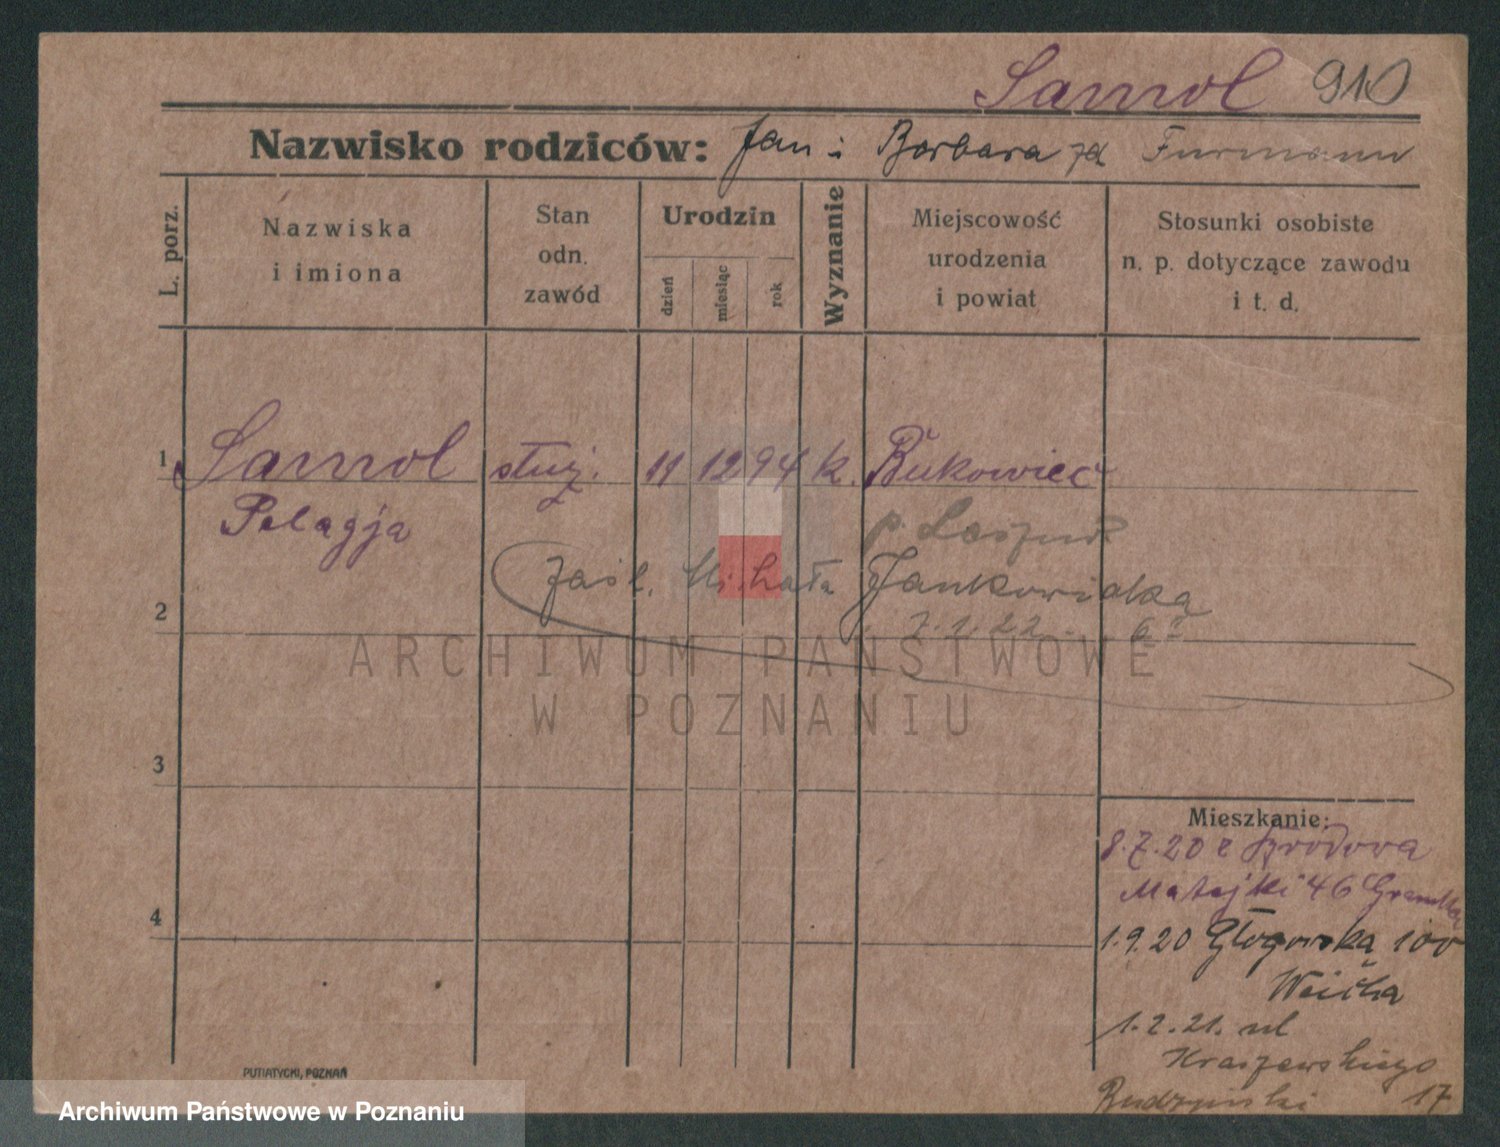 Samol 910
Nazwisko rodziców: Jan i Barbara zd Furmann
L. porz.
Nazwiska
i imiona
Stan
odn.
zawód
Urodzin
dzień
miesiąc
rok
Wyznanie
Miejscowość
urodzenia
i powiat
Stosunki osobiste
n. p. dotyczące zawodu
i t. d.
1 Samol służ. 11 12 94 k. Bukowiec
Pelagja
p.
zaśl. Michała Jankowiaka
2
7.1.22
ARCHIWUM PAŃSTWOWE
W POZNANIU
3
Mieszkanie:
8.7.20 z
Matejki 46
4
1.9.20 Głogowska 100
1.2.21. ul
Kraszewskiego
17
PUTIATYCKI, POZNAŃ
Archiwum Państwowe w Poznaniu